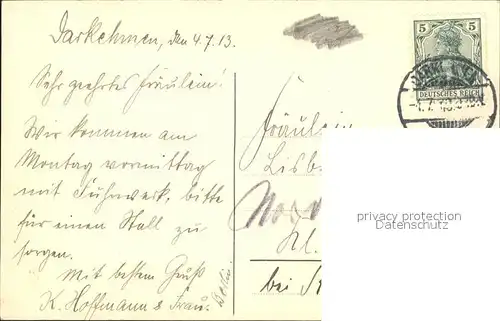 Darkehmen, den 4.7.13.
Sehr geehrtes Fräulein!
Wir kommen am
Montag vormittag
mit Fuhrwerk, bitte
für einen Stall zu
sorgen.
Mit bestem Gruß
K. Hoffmann & Frau.
Fräulein
Lisb
Kl.
bei
5 5
DEUTSCHES REICH
privacy protection
Datenschutz